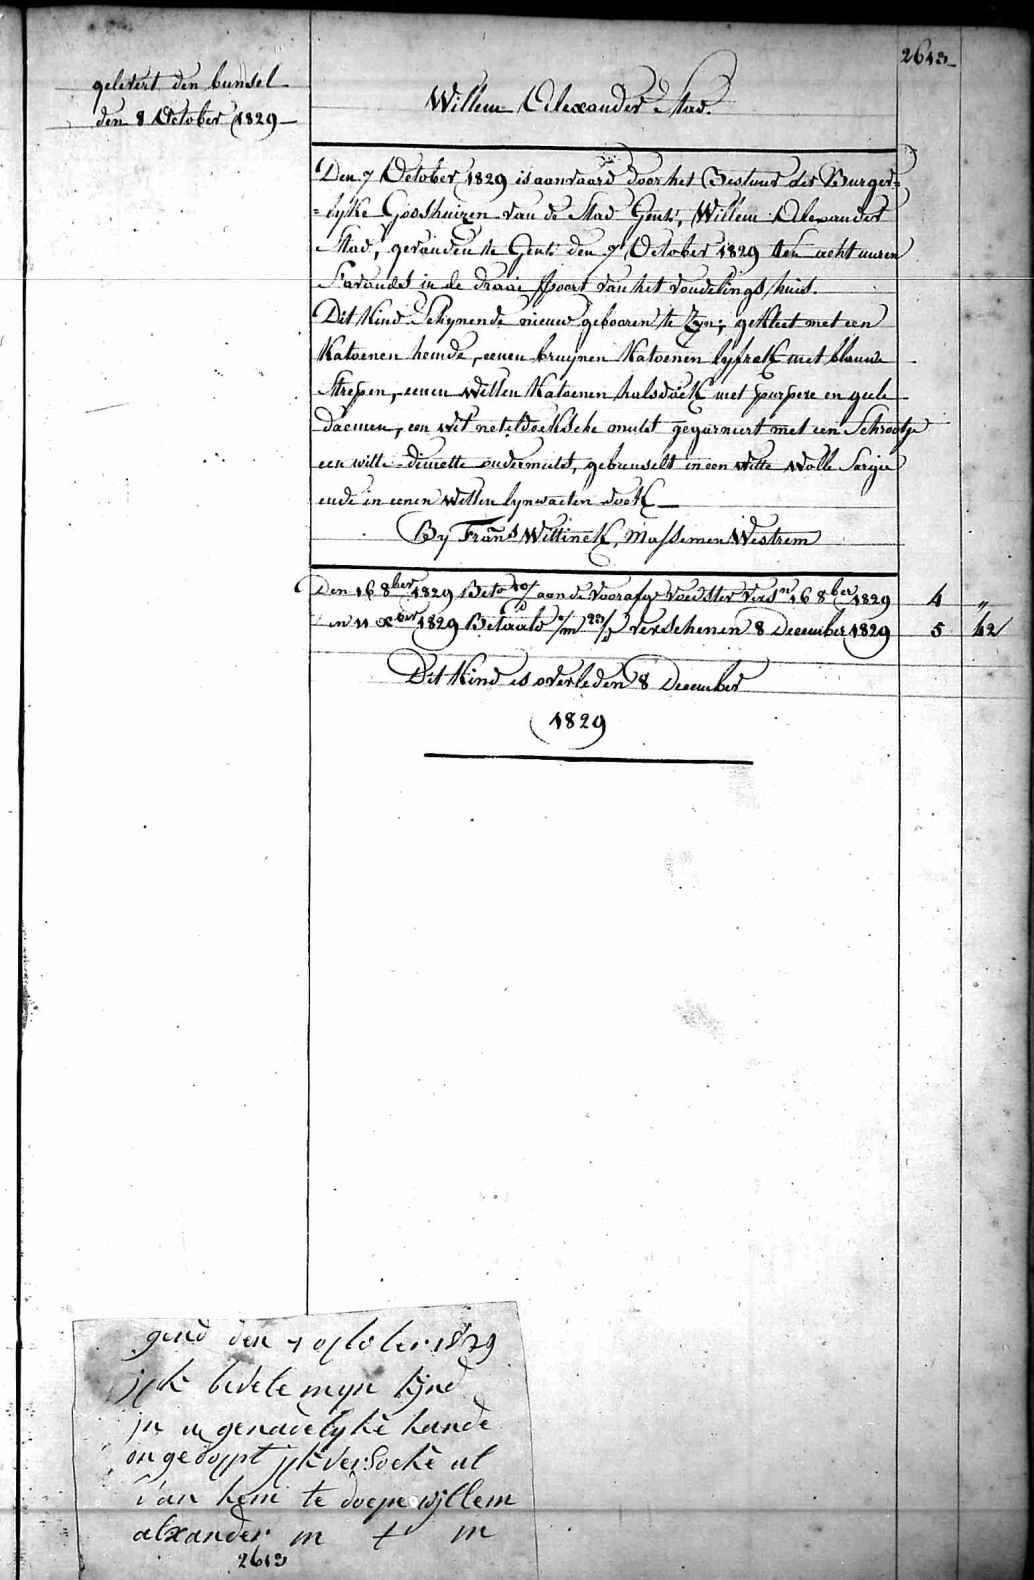 2613
gelevert den bundel
den 8 October 1829
Willem Alexander Stad.
Den 7 October 1829 is aanvaard door het Bestuur der Burger=
=lyke Godshuizen van de Stad Gent, Willem Alexander
Stad, gevonden te Gent den 7 October 1829 ten acht uuren
s'avonds in de draai poort van het vondelings huis.
Dit Kind Schynende nieuw gebooren te Zyn; gekleet met een
Katoenen hemde, eenen bruynen Katoenen lyfrok met blauwe
Strepen, eenen Witten Katoenen halsdoek met purpere en gele
, een wit neteldoeksche muts gegarneert met een Schrootje
een witte dimette ondermuts, gebeuselt in een witte wolle Sargie
ende in eenen Witten lynwaeten doek
By Frans Wittinck, Massemen Westrem
Den 16 8ber 1829 Beto aan de voorafge voedster Vers 16 8ber 1829 4 "
en 11 xber 1829 Betaald verschenen 8 December 1829 5 42
Dit Kind is overleden 8 December
1829
gend den 7 october 1829
ijk bevele myn kijnd
in u genadelijke hande
ongedopt ijk versoeke ul
van hem te doepe willem
alxander m t m
2613